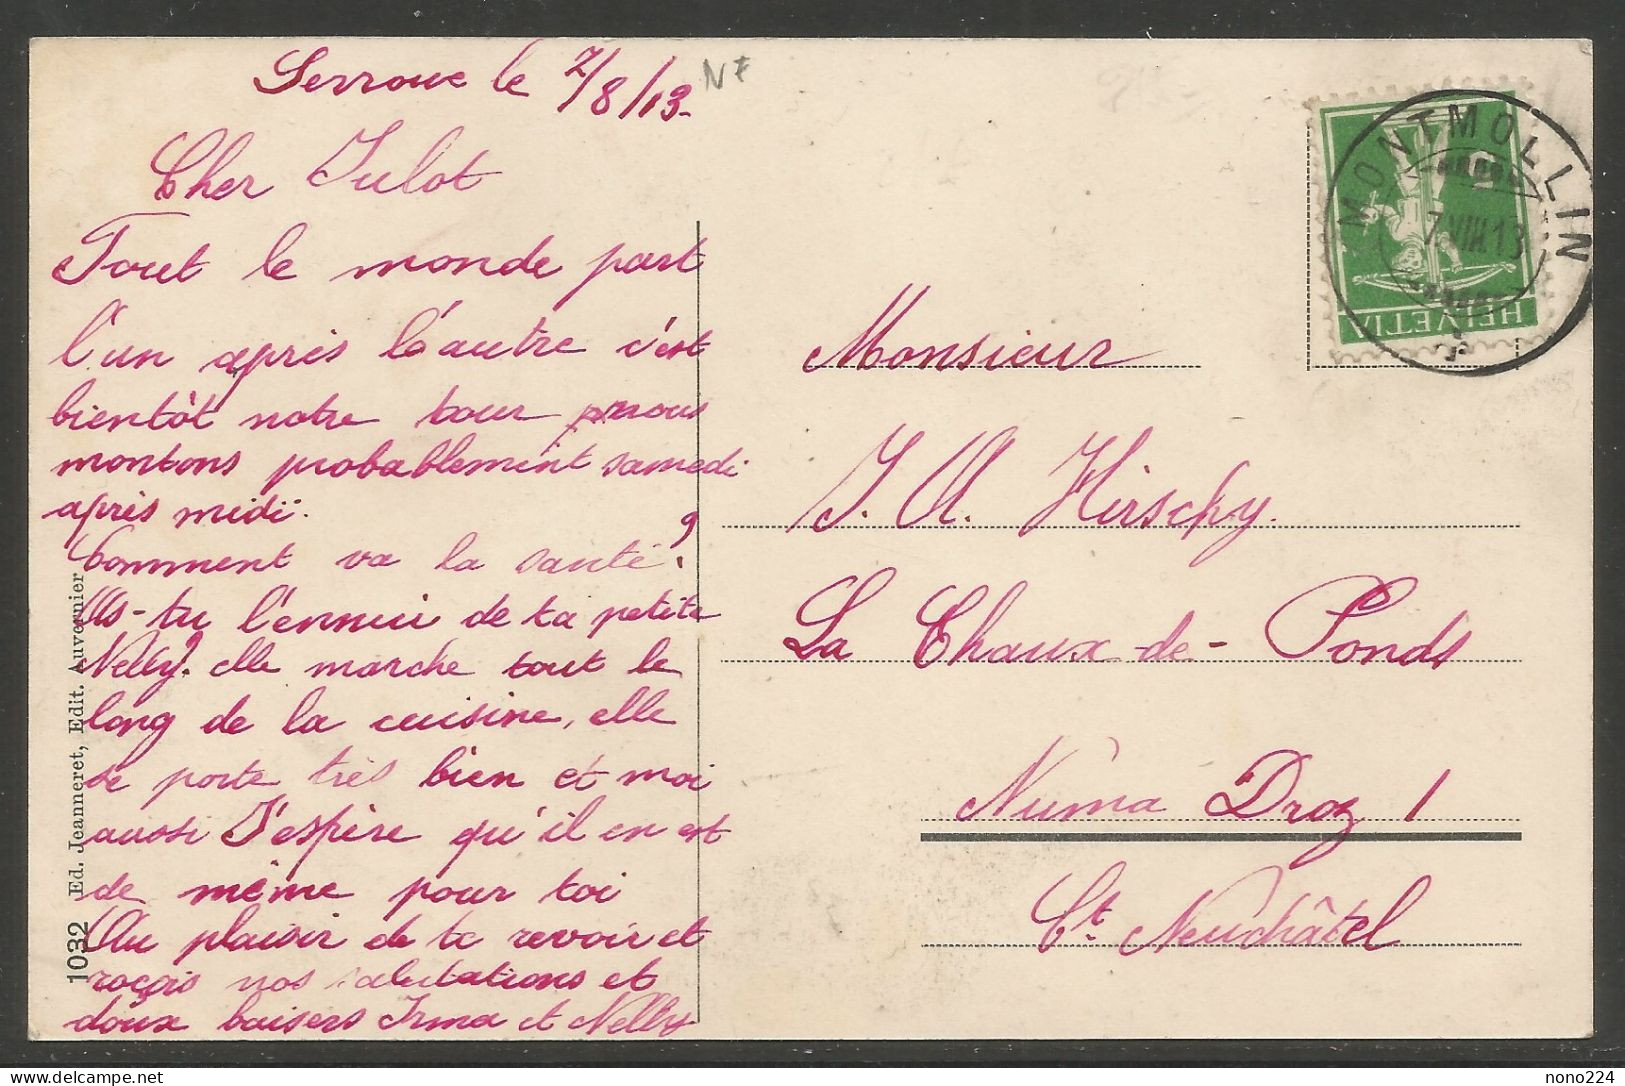 Serroue le 7/8/13- N 7
Cher Julot
Tout le monde part
l'un après l'autre c'est
bientôt notre tour nous
montons probablement samedi
après midi.
Comment va la santé?
As-tu l'ennui de ta petite
Nelly? elle marche tout le
long de la cuisine, elle
se porte très bien et moi
aussi J'espère qu'il en est
de même pour toi
Au plaisir de te revoir et
roçois nos salutations et
doux baisers Irma et Nelly
1032 Ed. Jeanneret, Edit. Auvernier
MONTMOLLIN
7.VIII.13
HELVETIA
5
Monsieur
J. A. Hirschy.
La Chaux-de-Fonds
Numa Droz 1
Ct. Neuchâtel
delcampe.net
nono224